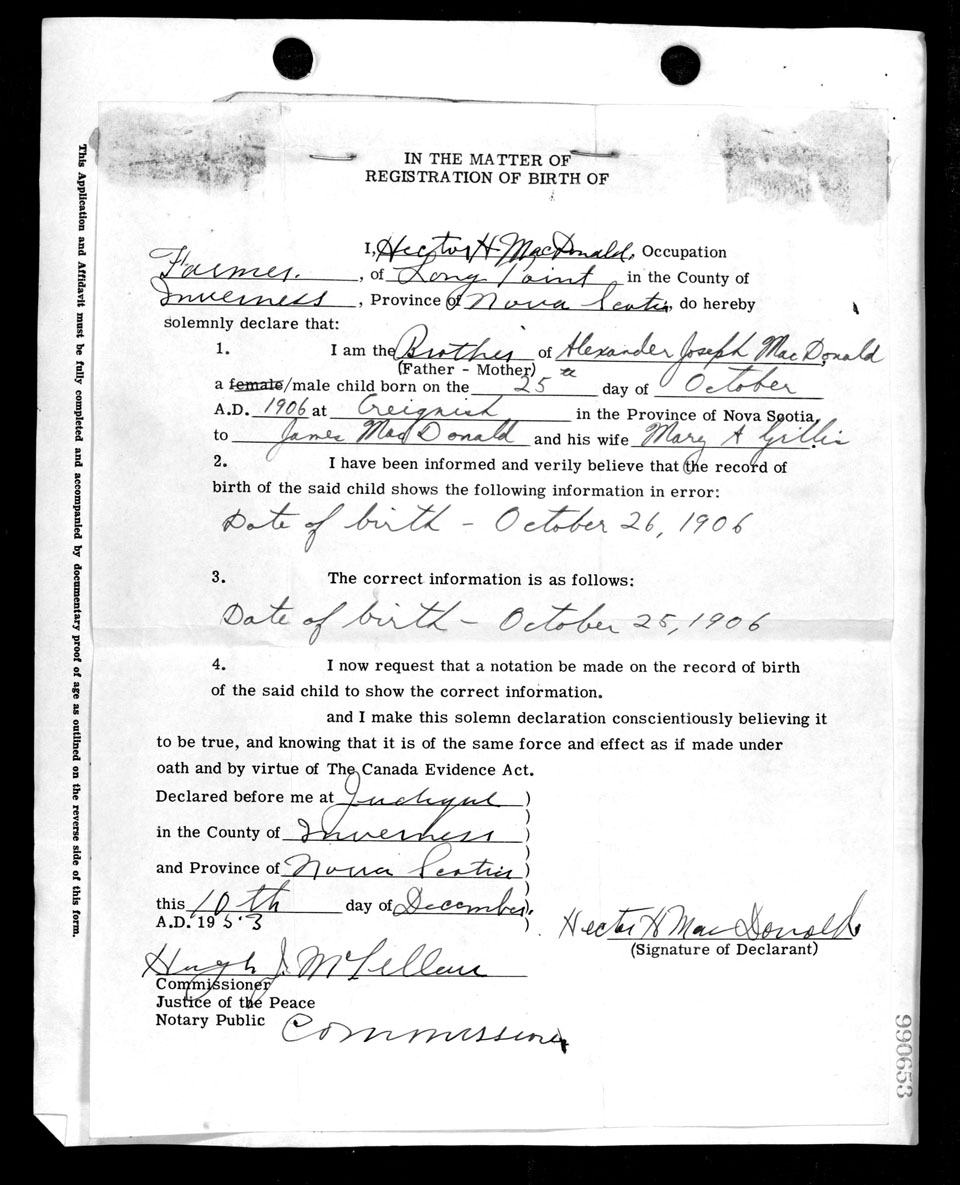 IN THE MATTER OF
REGISTRATION OF BIRTH OF
I, Hector H. MacDonald, Occupation
Farmer. , of Long Point in the County of
Inverness , Province of Nova Scotia, do hereby
solemnly declare that:
1. I am the Brother of Alexander Joseph MacDonald
(Father - Mother)
a female/male child born on the 25 th day of October
A.D. 1906 at Creignish in the Province of Nova Scotia,
to James MacDonald and his wife Mary A Gillis.
2. I have been informed and verily believe that the record of
birth of the said child shows the following information in error:
Date of birth - October 26, 1906
3. The correct information is as follows:
Date of birth - October 25, 1906
4. I now request that a notation be made on the record of birth
of the said child to show the correct information.
and I make this solemn declaration conscientiously believing it
to be true, and knowing that it is of the same force and effect as if made under
oath and by virtue of The Canada Evidence Act.
Declared before me at Judique )
in the County of Inverness )
and Province of Nova Scotia )
this 10th day of December, )
A.D. 1953 )
Hector H MacDonald
(Signature of Declarant)
Hugh J. McLellan
Commissioner
Justice of the Peace
Notary Public Commissioner
This Application and Affidavit must be fully completed and accompanied by documentary proof of age as outlined on the reverse side of this form.
990653